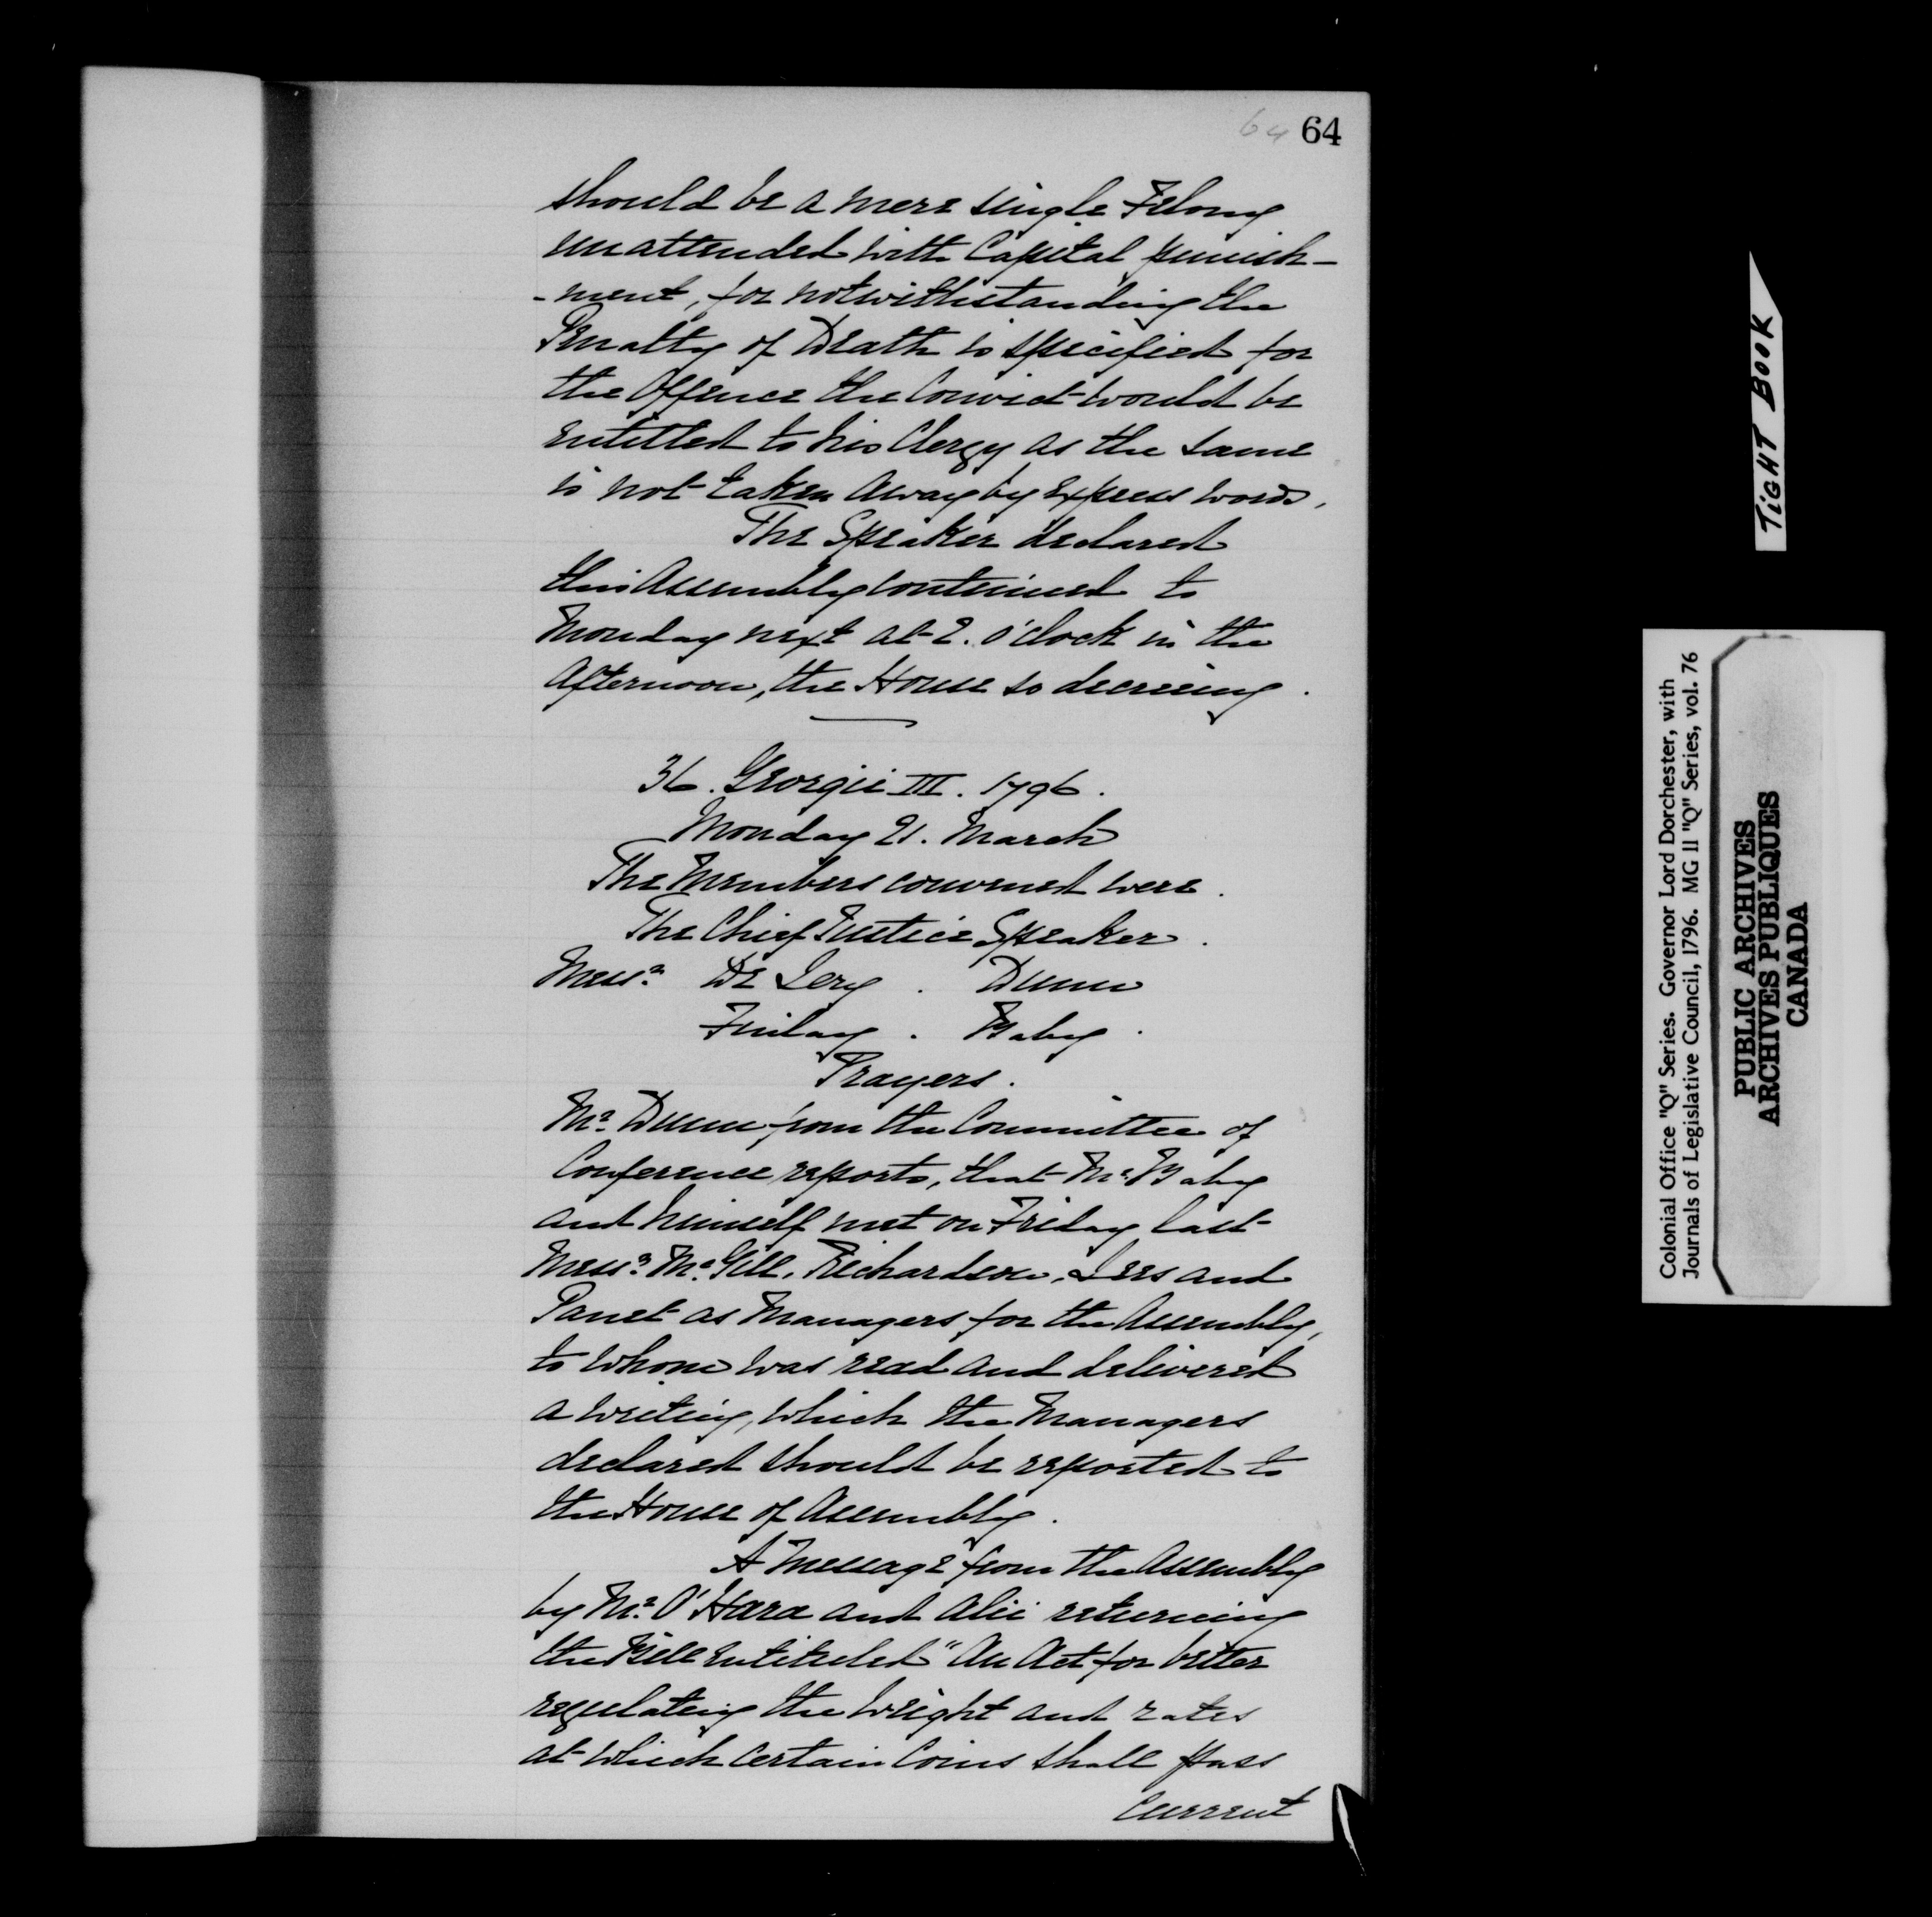 64 64
should be a mere single Felony
unattended with Capital punish-
-ment, for notwithstanding the
Penalty of Death is specified for
the Offence the Convict would be
entitled to his Clergy as the same
is not taken away by express words,
The Speaker declared
this Assembly continued to
Monday next at 2. o'clock in the
afternoon, the House so decreeing.
36. Georgii III. 1796.
Monday 21. March
The Members convened were.
The Chief Justice Speaker.
Messrs De Lery. Dunn
Finlay. Baby.
Prayers.
Mr. Dunn from the Committee of
Conference reports, that Mr. Baby
and himself met on Friday last
Messrs McGill, Richardson, Lees and
Panet as Managers for the Assembly,
to whom was read and delivered
a writing, which the Managers
declared should be reported to
the House of Assembly.
A Message from the Assembly
by Mr. O'Hara and alii returning
the Bill entituled "An Act for better
regulating the Weight and rates
at which certain Coins shall pass
Current
TIGHT BOOK
Colonial Office "Q" Series. Governor Lord Dorchester, with
Journals of Legislative Council, 1796. MG 11 "Q" Series, vol. 76
PUBLIC ARCHIVES
ARCHIVES PUBLIQUES
CANADA